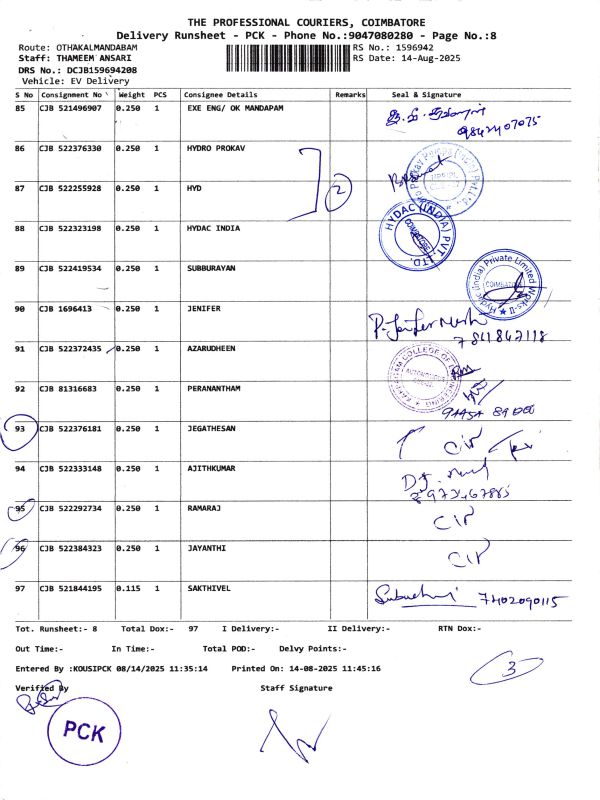 THE PROFESSIONAL COURIERS, COIMBATORE
Delivery Runsheet - PCK - Phone No.:9047080280 - Page No.:8
Route: OTHAKALMANDABAM
RS No.: 1596942
Staff: THAMEEM ANSARI
RS Date: 14-Aug-2025
DRS No.: DCJB159694208
Vehicle: EV Delivery
S No Consignment No Weight PCS Consignee Details Remarks Seal & Signature
85 CJB 521496907 0.250 1 EXE ENG/ OK MANDAPAM
9842407075
86 CJB 522376330 0.250 1 HYDRO PROKAV
87 CJB 522255928 0.250 1 HYD
2
88 CJB 522323198 0.250 1 HYDAC INDIA
HYDAC (INDIA) PVT. LTD.
COIMBATORE
89 CJB 522419534 0.250 1 SUBBURAYAN
Hydac (India) Private Limited Works-II
COIMBATORE
90 CJB 1696413 0.250 1 JENIFER
91 CJB 522372435 0.250 1 AZARUDHEEN
92 CJB 81316683 0.250 1 PERANANTHAM
93 CJB 522376181 0.250 1 JEGATHESAN
94 CJB 522333148 0.250 1 AJITHKUMAR
95 CJB 522292734 0.250 1 RAMARAJ
96 CJB 522384323 0.250 1 JAYANTHI
97 CJB 521844195 0.115 1 SAKTHIVEL
7402090115
Tot. Runsheet:- 8 Total Dox:- 97 I Delivery:- II Delivery:- RTN Dox:-
Out Time:- In Time:- Total POD:- Delvy Points:-
Entered By :KOUSIPCK 08/14/2025 11:35:14 Printed On: 14-08-2025 11:45:16
3
Verified By Staff Signature
PCK